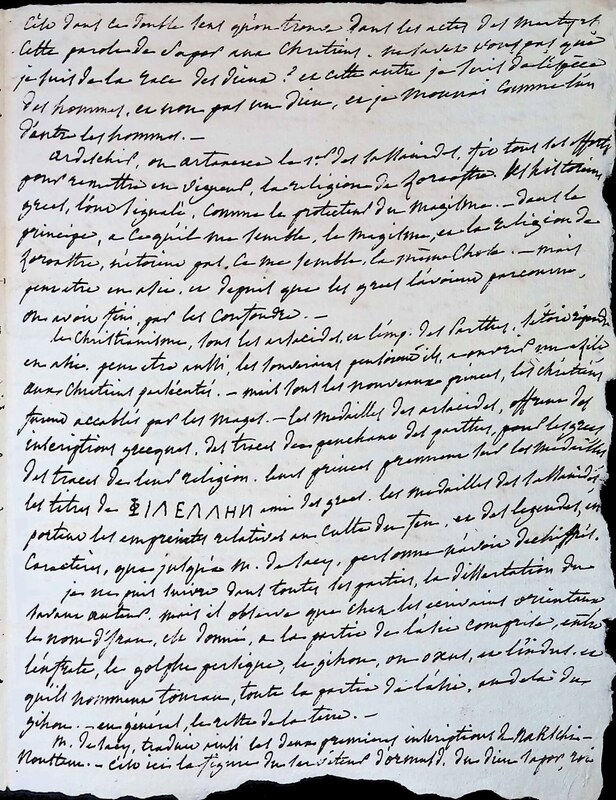 C'est dans ce double sens qu'on trouve dans les actes des martyrs
cette parole de Sapor aux Chretiens. ne savez vous pas que
je suis de la race des dieux? et cette autre je suis de l'espece
des hommes, et non pas un dieu, et je mourrai comme l'un
d'entre les hommes. —
Ardeschir, ou artaxerce le 1er des sassanides, fit tous ses efforts
pour remettre en vigueur, la religion de Zoroastre. les historiens
grecs, l'ont signalé, comme le protecteur du magisme. — dans le
principe, a ce qu'il me semble, le magisme, et la religion de
Zoroastre, n'etoient pas, ce me semble, la même chose. — mais
peut etre en asie, et depuis que les grecs l'avoient parcourue,
on avoit fini, par les confondre. —
le Christianisme, sous les arsacides, et l'emp. des Parthes, s'etoit repandu
en asie. peut etre aussi, les souverains pensoient ils, a ouvrir un asile
aux Chretiens persécutés. — mais sous les nouveaux princes, les chrétiens
furent accablés par les mages. — les medailles des arsacides, offrent des
inscriptions grecques, des traces du penchant des parthes, pour les grecs
des traces de leur religion. leurs princes prennent sur les medailles
les titres de ΦΙΛΕΛΛΗΝ ami des grecs. les medailles des sassanides
portent les empreintes relatives au culte du feu, et des legendes, en
caractères, que jusqu'à m. de sacy, personne n'avoit dechiffrés.
je ne puis suivre dans toutes ses parties, la dissertation du
savant auteur. mais il observe que chez les ecrivains orientaux
le nom d'Iran, est donné, a la partie de l'asie comprise, entre
l'eufrate, le golphe persique, le gihon, ou oxus, et l'indus. et
qu'ils nomment touran, toute la partie de l'asie, au delà du
gihon. — en général, le reste de la terre. —
m. de sacy, traduit ainsi les deux premieres inscriptions de Nakschi-
Roustem. — C'est ici la figure du serviteur d'ormusd, du dieu sapor, roi